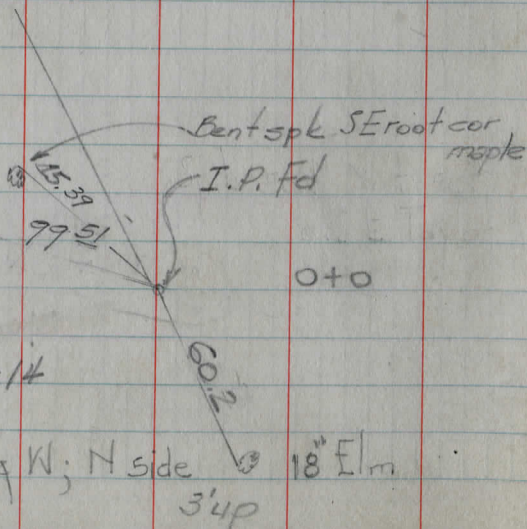 Bent spk SE root cor
maple
I.P. Fd
15.39
99 51
0+0
60.2
14
W; N side
18" Elm
3' up